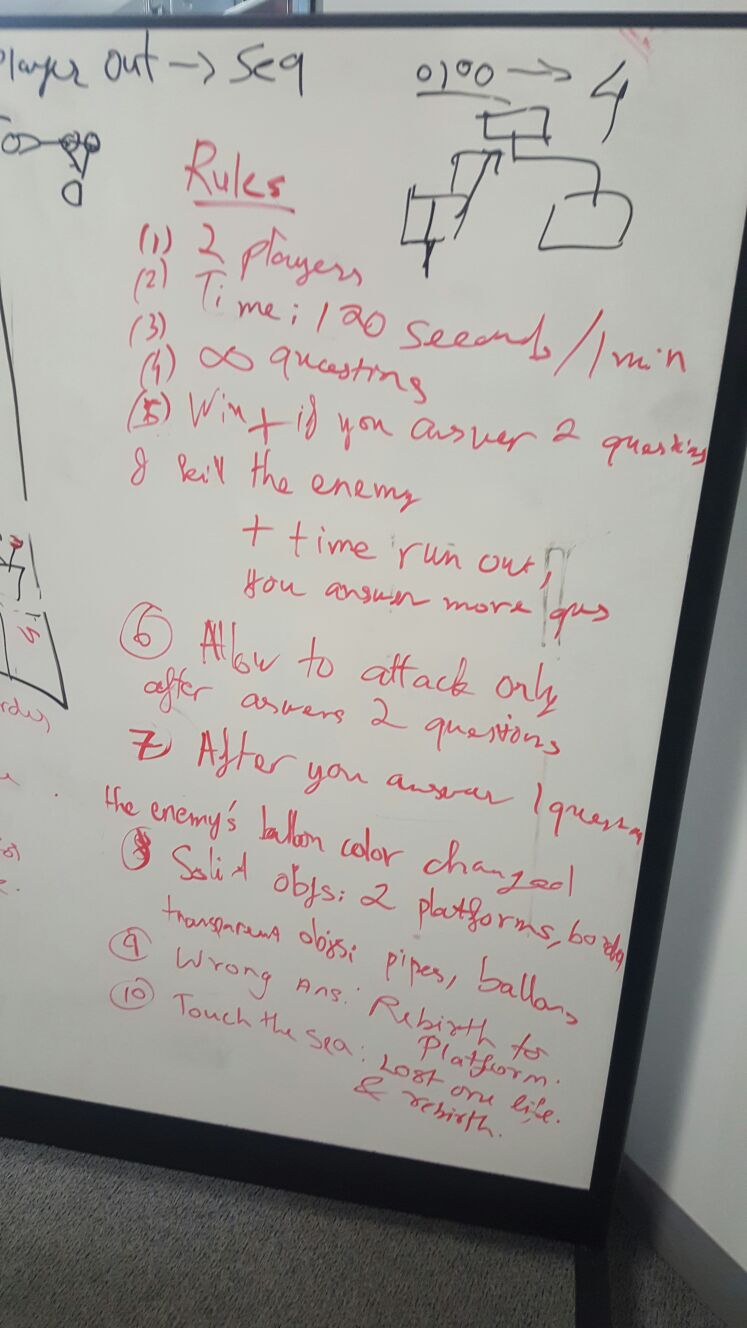 Player out → Seq
0100 → 4
Rules
(1) 2 players
(2) Time: 120 seconds/1min
(3)
(4) ∞ questing
(5) Win + if you answer 2 questins
& kill the enemy
+ time run out,
you answer more ques
6 Allow to attack only
after answers 2 questions
7 After you answer 1 question
the enemy's ballon color changed
8 Solid objs: 2 platforms, border
transparent objs: pipes, ballons
9 Wrong Ans: Rebirth to
Platform.
10 Touch the sea: Lost one life.
& rebirth.